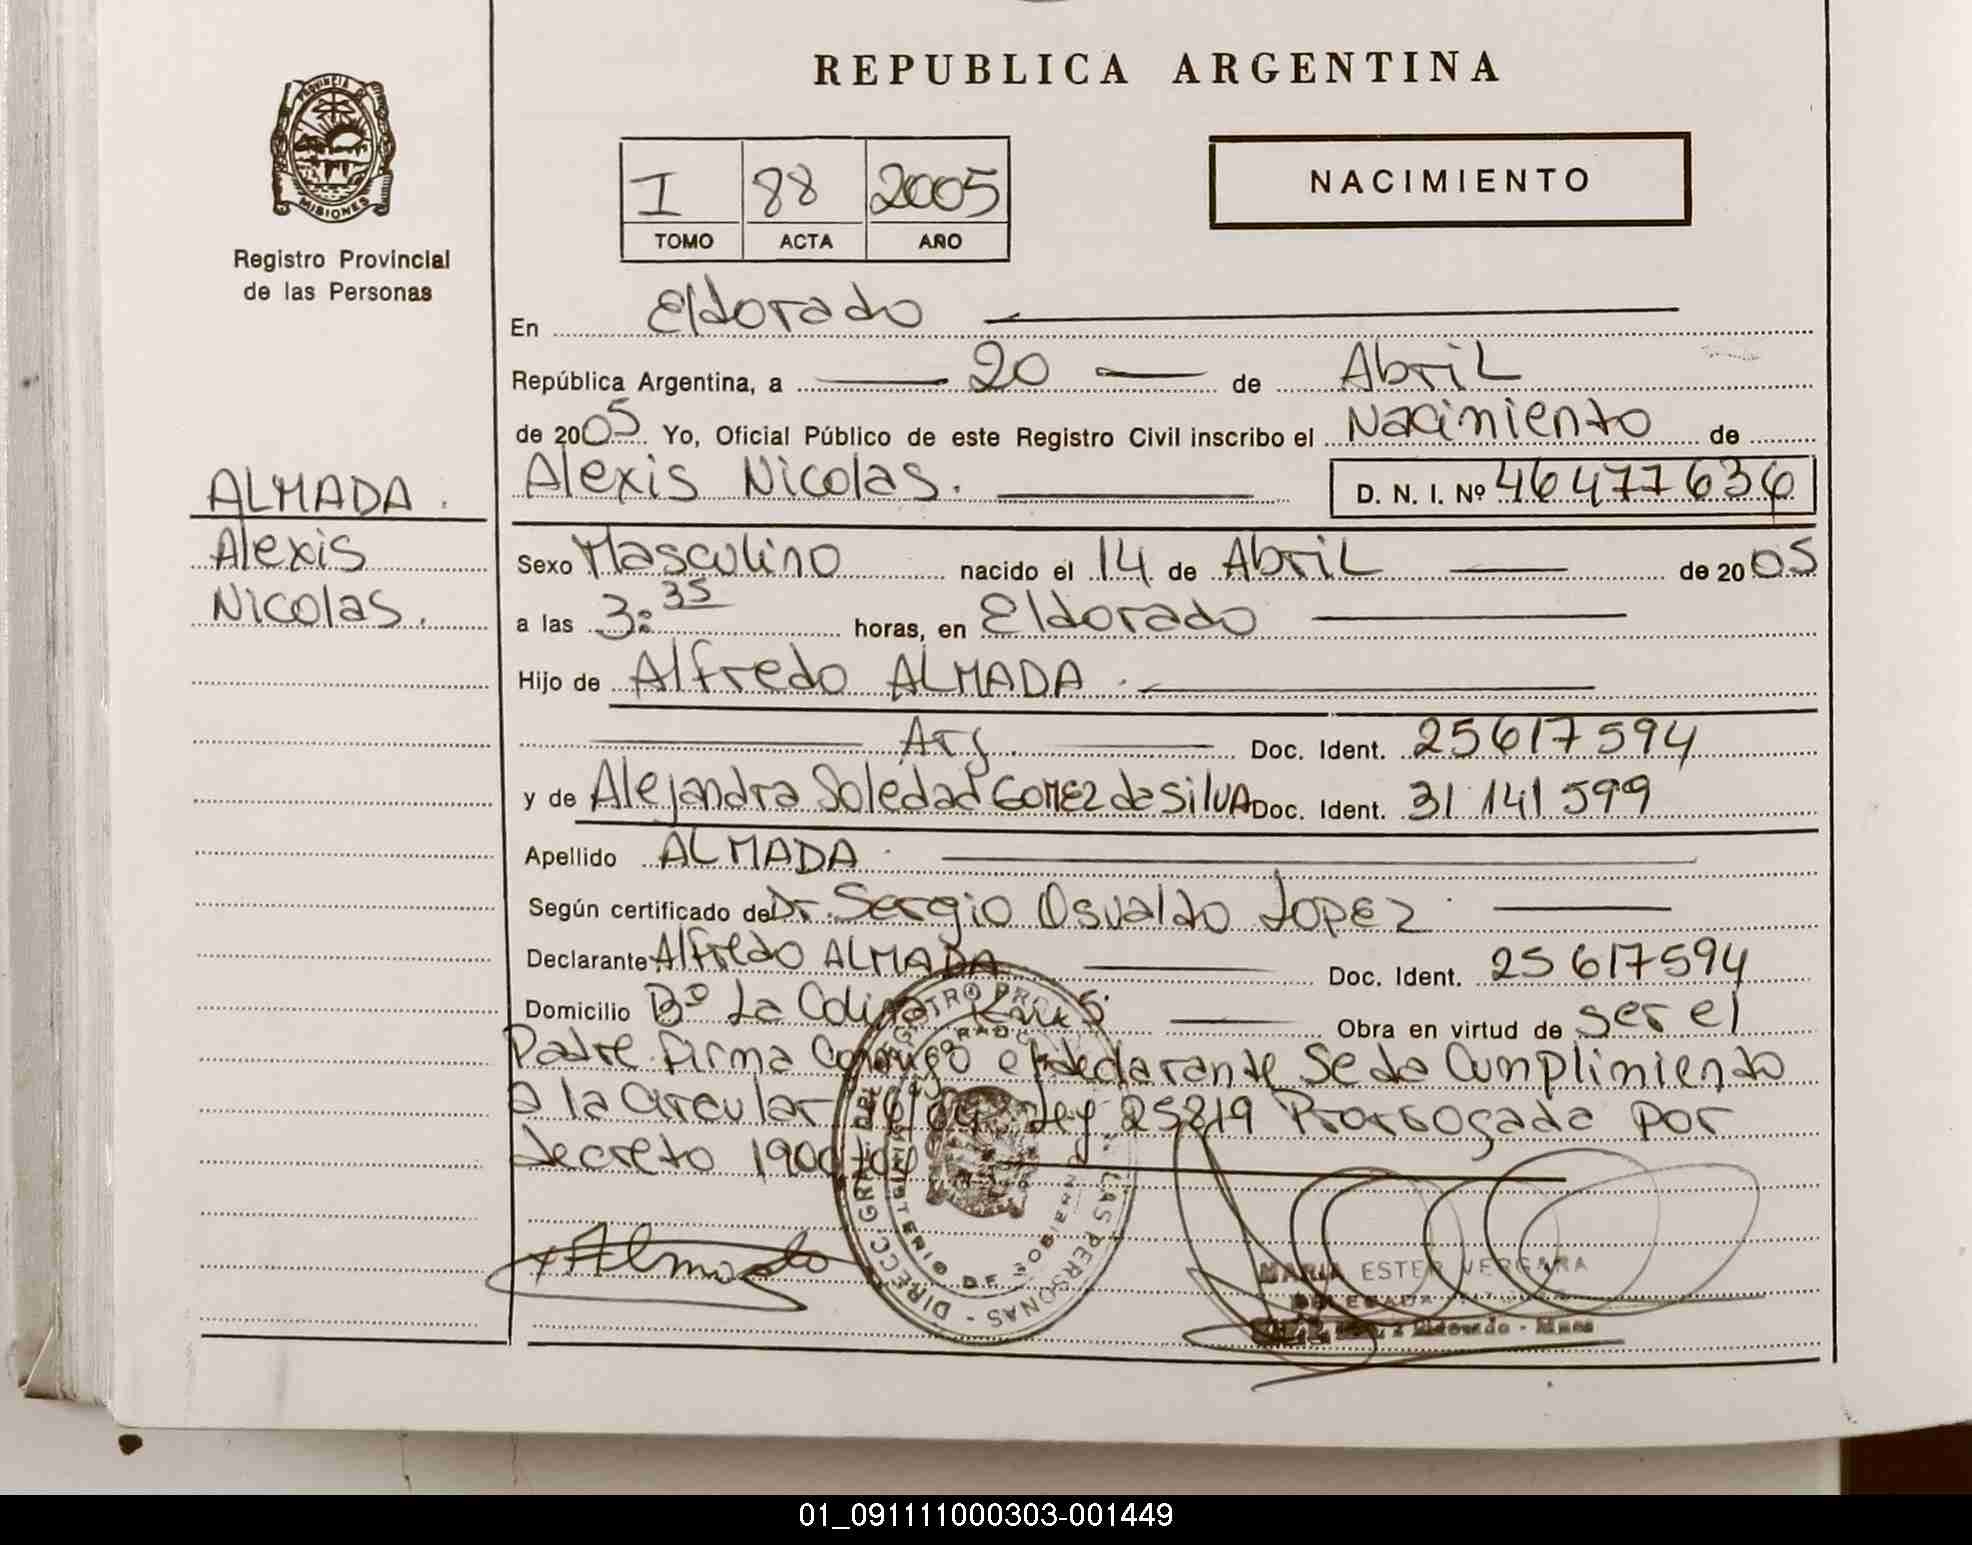 REPUBLICA ARGENTINA
PROVINCIA DE
MISIONES
Registro Provincial
de las Personas
I 88 2005
TOMO ACTA AÑO
NACIMIENTO
En Eldorado
República Argentina, a 20 de Abril
de 2005 Yo, Oficial Público de este Registro Civil inscribo el Nacimiento de
Alexis Nicolas. D. N. I. Nº 46477636
ALMADA.
Alexis
Nicolas.
Sexo Masculino nacido el 14 de Abril de 2005
a las 3:35 horas, en Eldorado
Hijo de Alfredo ALMADA.
Arg. Doc. Ident. 25617594
y de Alejandra Soledad GOMEZ da SilVA Doc. Ident. 31 141 599
Apellido ALMADA.
Según certificado de Dr. Sergio Osvaldo Lopez.
Declarante Alfredo ALMADA Doc. Ident. 25 617594
Domicilio Bº La Colina Km 5 Obra en virtud de ser el
Padre. firma Conmigo el declarante Se da Cumplimiento
a la Circular Ley 25819 Prorrogada por
decreto
Almada
DIRECC. GRAL. REGISTRO PROV. LAS PERSONAS
MINISTERIO DE GOBIERNO
MARIA ESTER VERGARA
DELEGADA
Eldorado - Mnes
01_091111000303-001449